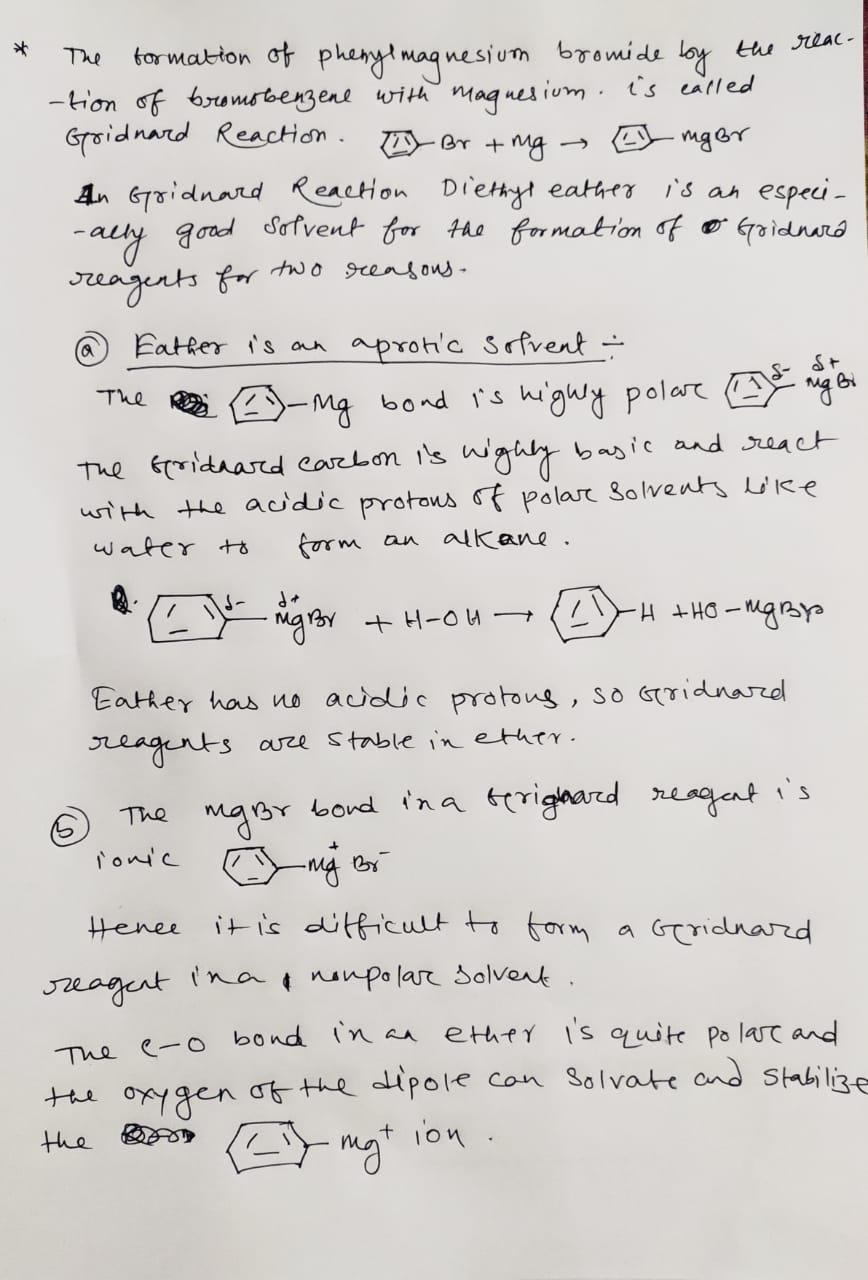 * The formation of phenylmagnesium bromide by the reac-
-tion of bromobenzene with magnesium. is called
Gridnard Reaction. Br + Mg → MgBr
In Gridnard Reaction Diethyl eather is an especi-
-ally good solvent for the formation of Gridnard
reagents for two reasons.
(a) Eather is an aprotic solvent ÷
The -Mg bond is highly polar δ- δ+ MgBr
The Gridnard carbon is highly basic and react
with the acidic protons of polar solvents like
water to form an alkane.
δ- δ+ MgBr + H-OH → -H + HO-MgBr
Eather has no acidic protons, so Gridnard
reagents are stable in ether.
(b) The MgBr bond in a Grignard reagent is
ionic -Mg+ Br-
Hence it is difficult to form a Gridnard
reagent in a nonpolar solvent.
The C-O bond in an ether is quite polar and
the oxygen of the dipole can solvate and stabilize
the -Mg+ ion.